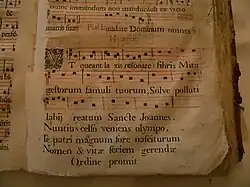 audate Dominum omnes
Ut queant la xis resonare fibris Mira
gestorum famuli tuorum, Solve polluti
labij reatum Sancte Joannes.
Nuntius celso veniens olympo,
Te patri magnum fore nasciturum
Nomen & vitæ seriem gerendæ
Ordine promit